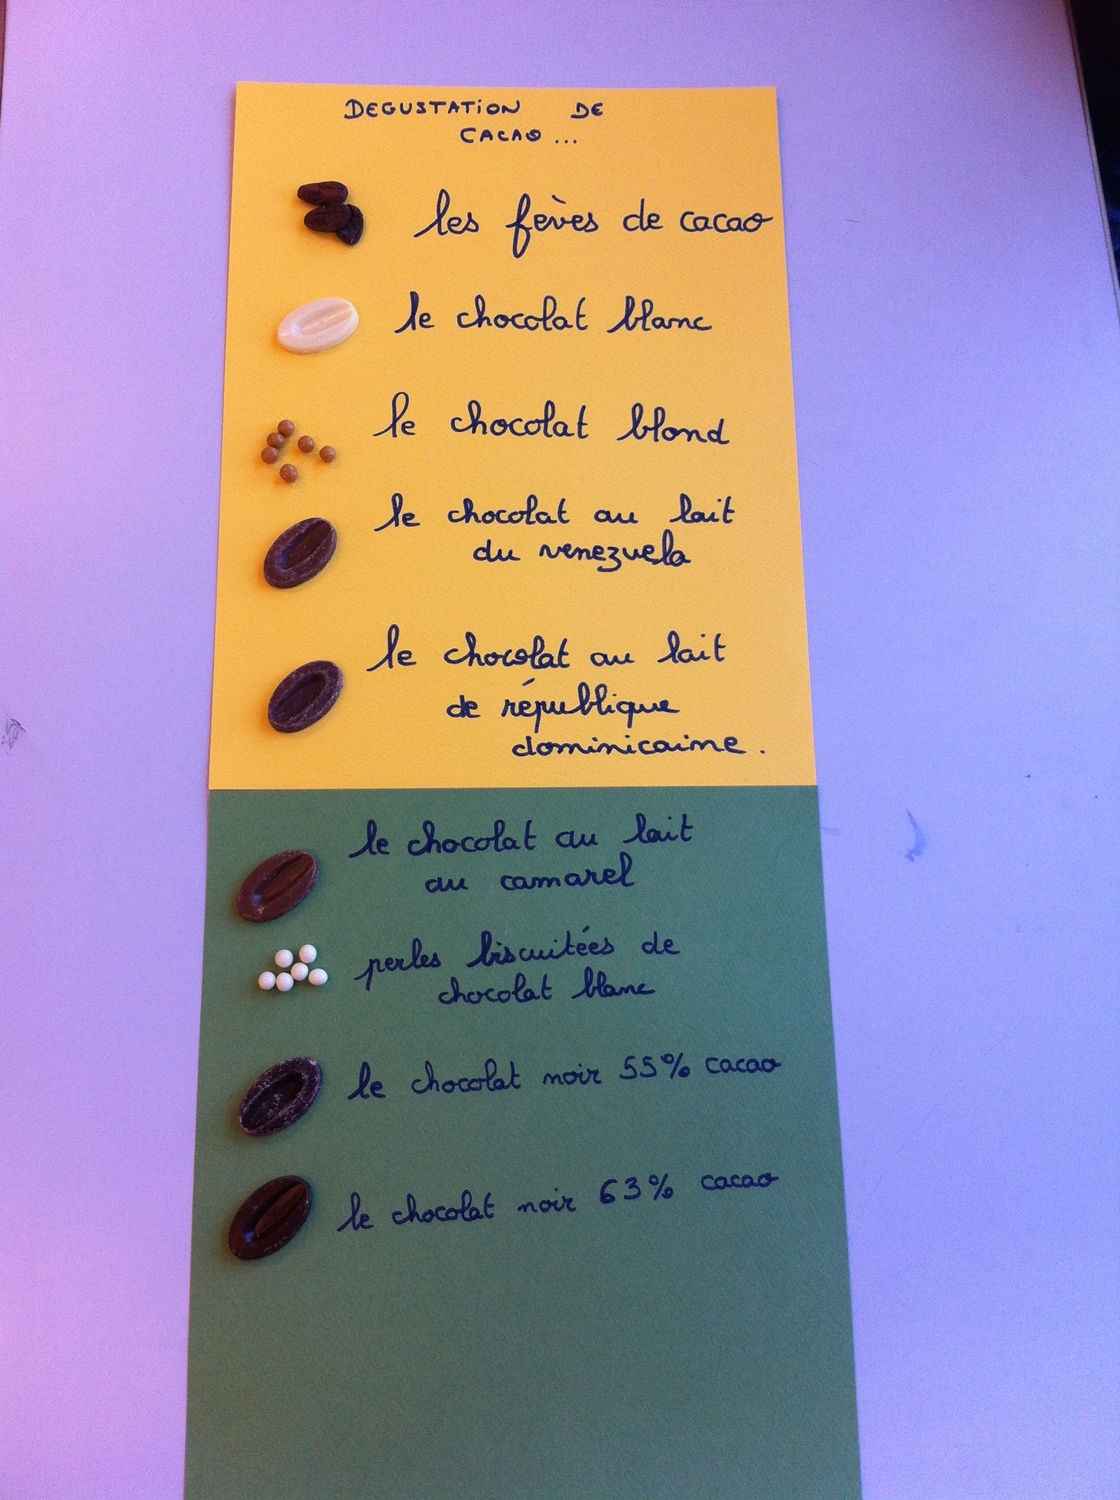 DEGUSTATION DE
CACAO...
les fèves de cacao
le chocolat blanc
le chocolat blond
le chocolat au lait
du venezuela
le chocolat au lait
de république
dominicaine.
le chocolat au lait
au camarel
perles biscuitées de
chocolat blanc
le chocolat noir 55% cacao
le chocolat noir 63% cacao